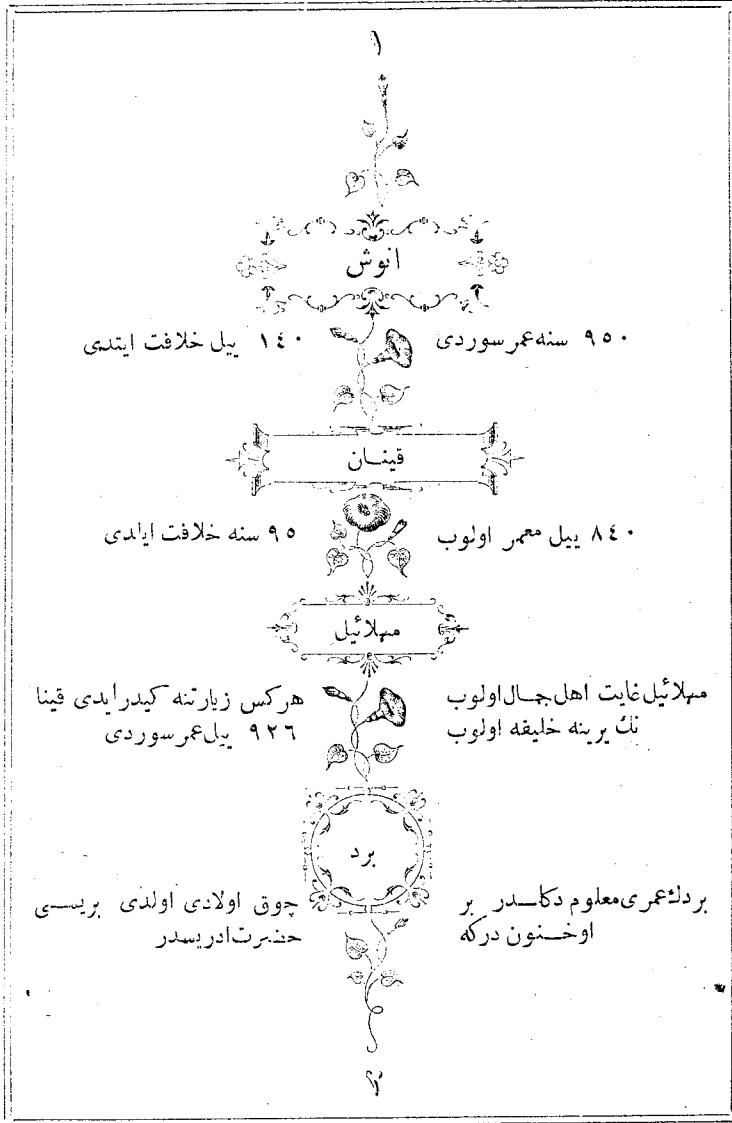 ١
انوش
٩٥٠ سنه عمر سوردی ١٤٠ ییل خلافت ایتدی
قینان
٨٤٠ ییل معمر اولوب ٩٥ سنه خلافت ایلدی
مهلائیل
مهلائیل غایت اهل جمال اولوب هرکس زیارتنه کیدر ایدی قینا
نك یرینه خلیفه اولوب ٩٢٦ ییل عمر سوردی
برد
بردك عمری معلوم دکلدر بر چوق اولادی اولدی بریسی
اوخنون درکه حضرت ادریسدر